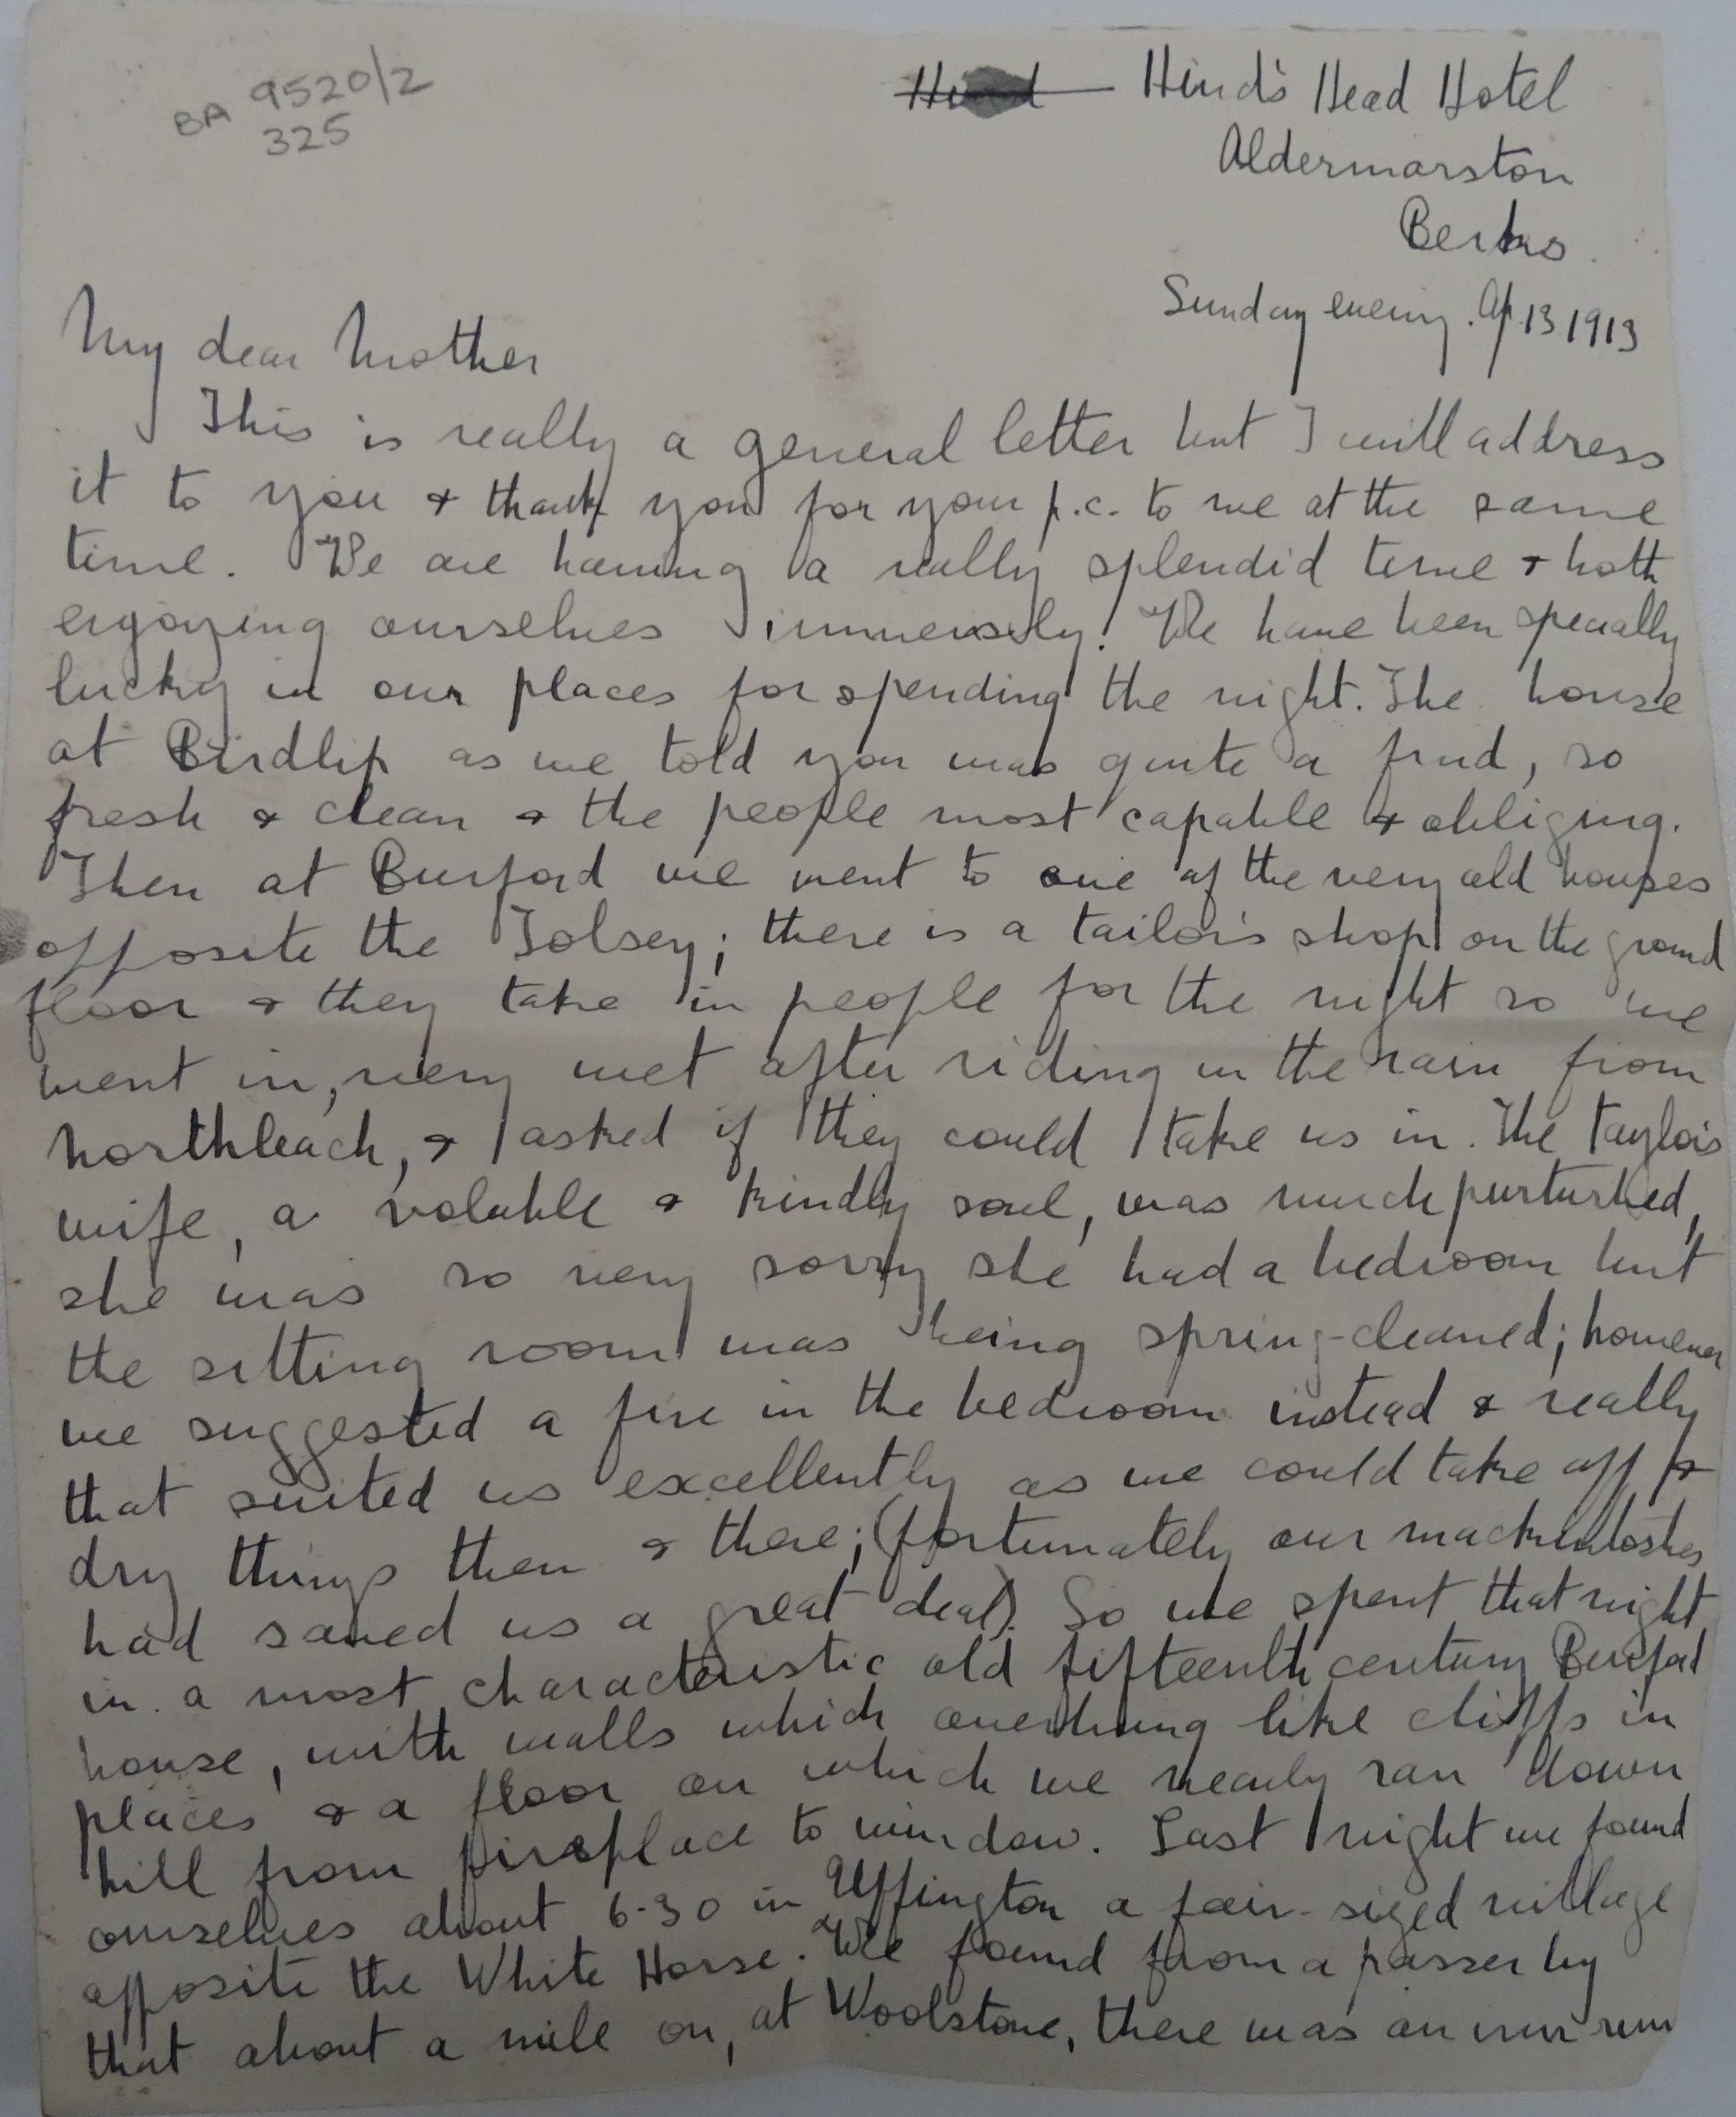 BA 9520/2
325
Hind's Head Hotel
Aldermarston
Berks.
Sunday evening. Ap. 13 1913
My dear Mother
This is really a general letter but I will address
it to you & thank you for your p.c. to me at the same
time. We are having a really splendid time & both
enjoying ourselves immensely! We have been specially
lucky in our places for spending the night. The house
at Birdlip as we told you was quite a find, so
fresh & clean & the people most capable & obliging.
Then at Burford we went to one of the very old houses
opposite the Tolsey; there is a tailor's shop on the ground
floor & they take in people for the night so we
went in, very wet after riding in the rain from
Northleach, & asked if they could take us in. The taylor's
wife, a voluble & kindly soul, was much purturbed,
she was so very sorry she had a bedroom but
the sitting room was being spring-cleaned; however
we suggested a fire in the bedroom instead & really
that suited us excellently as we could take off &
dry things then & there; (fortunately our mackintoshes
had saved us a great deal). So we spent that night
in a most characteristic old fifteenth century Burford
house, with walls which overhung like cliffs in
places & a floor on which we nearly ran down
hill from fireplace to window. Last night we found
ourselves about 6.30 in Uffington a fair-sized village
opposite the White Horse. We found from a passer by
that about a mile on, at Woolstone, there was an inn run